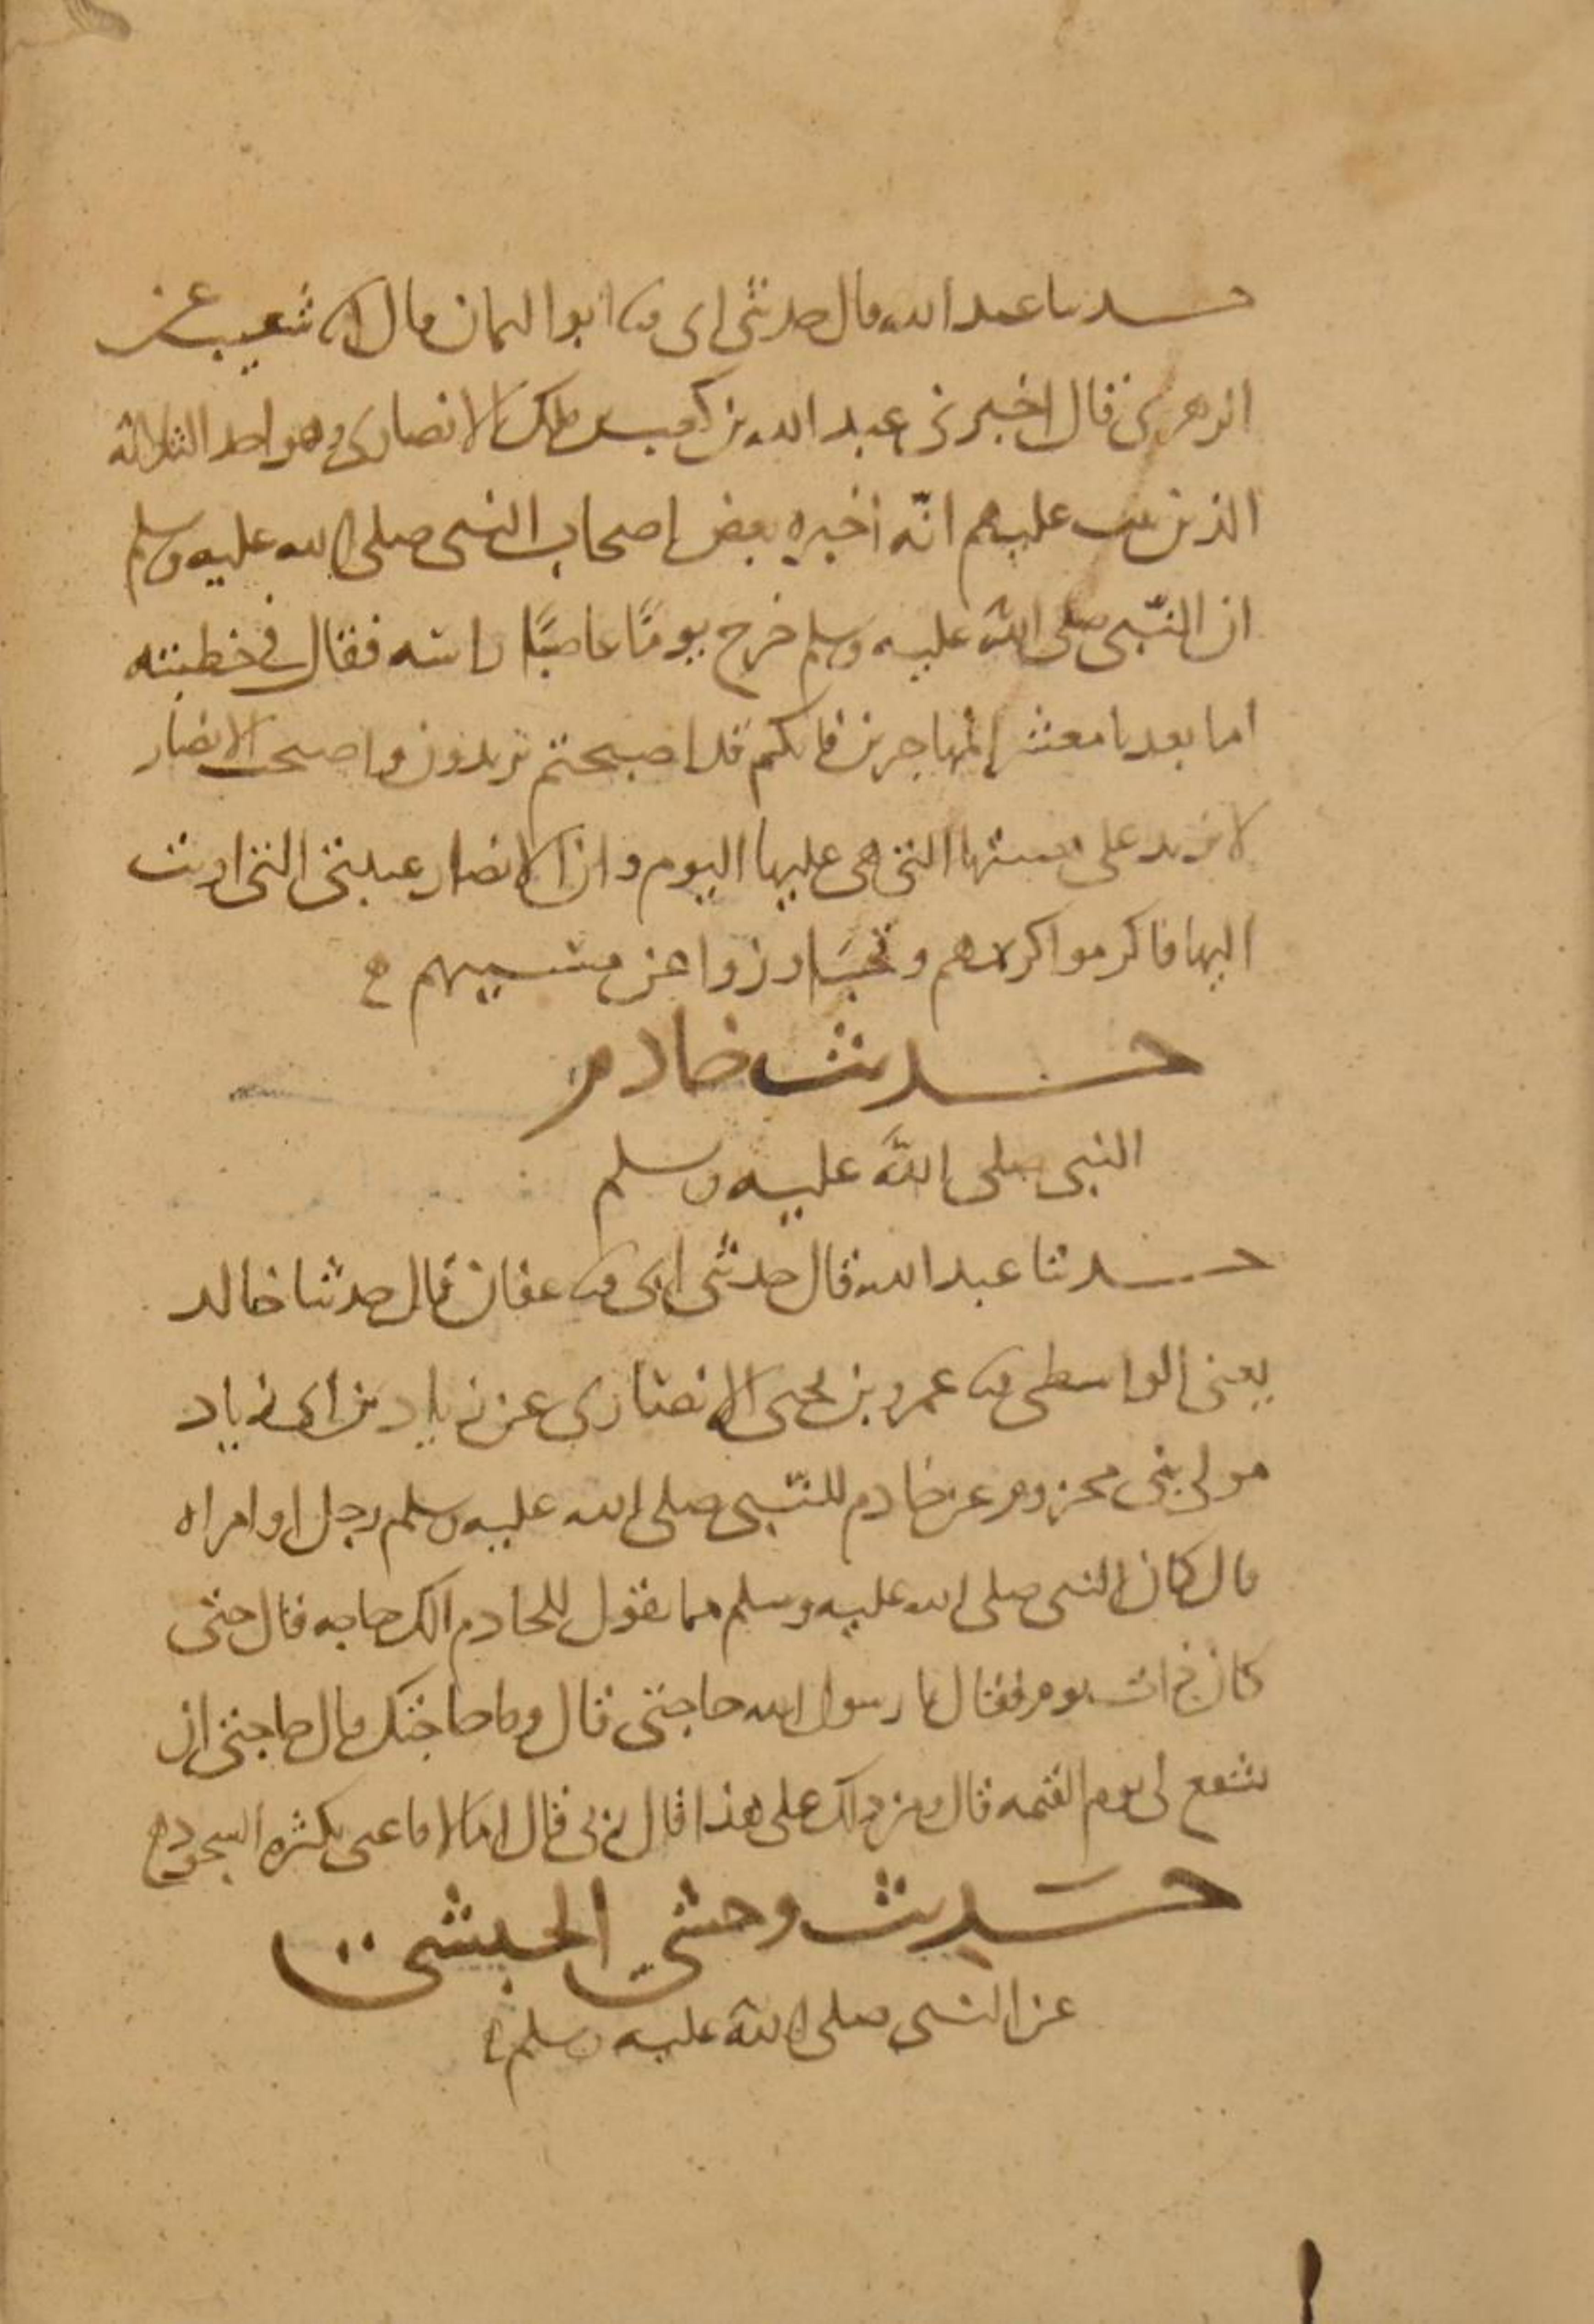 حدثنا عبد الله قال حدثني ابي ثنا ابو اليمان قال انا شعيب عن
الزهري قال اخبرني عبد الله بن كعب بن ملك الانصاري وهو احد الثلاثة
الذين تيب عليهم انّه اخبره بعض اصحاب النبي صلى الله عليه وسلم
ان النّبي صلى الله عليه وسلم خرج يومًا عاصبًا راسه فقال في خطبته
اما بعد يا معشر المهاجرين فانكم قد اصبحتم تزيدون واصبحت الانصار
لا تزيد على هيئتها التي هي عليها اليوم وان الانصار عيبتي التي اويت
اليها فاكرموا كريمهم وتجاوزوا عن مسيهم
حديث خادم
النبي صلى الله عليه وسلم
حدثنا عبد الله قال حدثني ابي ثنا عفان قال حدثنا خالد
يعني الواسطي ثنا عمرو بن يحيى الانصاري عن زياد بن ابي زياد
مولى بني مخزوم عن خادم للنّبي صلى الله عليه وسلم رجل او امراه
قال كان النبي صلى الله عليه وسلم مما يقول للخادم الك حاجه قال حتى
كان ذات يوم فقال يا رسول الله حاجتي قال وما حاجتك قال حاجتي ان
تشفع لي يوم القيمه قال ومن دلك على هذا قال ربي قال اما لا فاعني بكثره السجود
حديث وحشي الحبشي
عن النبي صلى الله عليه وسلم